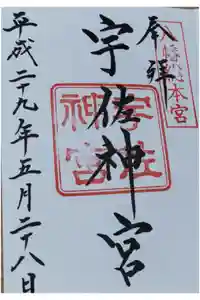 奉拝
八幡総本宮
宇佐神宮
宇佐
神宮
平成二十九年五月二十八日